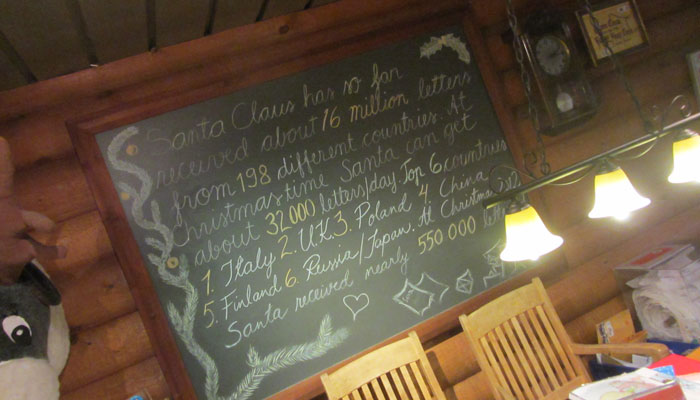 Santa Claus has so far
received about 16 million letters
from 198 different countries. At
Christmastime Santa can get
about 32000 letters/day. Top 6 countries
1. Italy 2. U.K. 3. Poland 4. China
5. Finland 6. Russia/Japan. At Christmas
Santa received nearly 550.000 letters